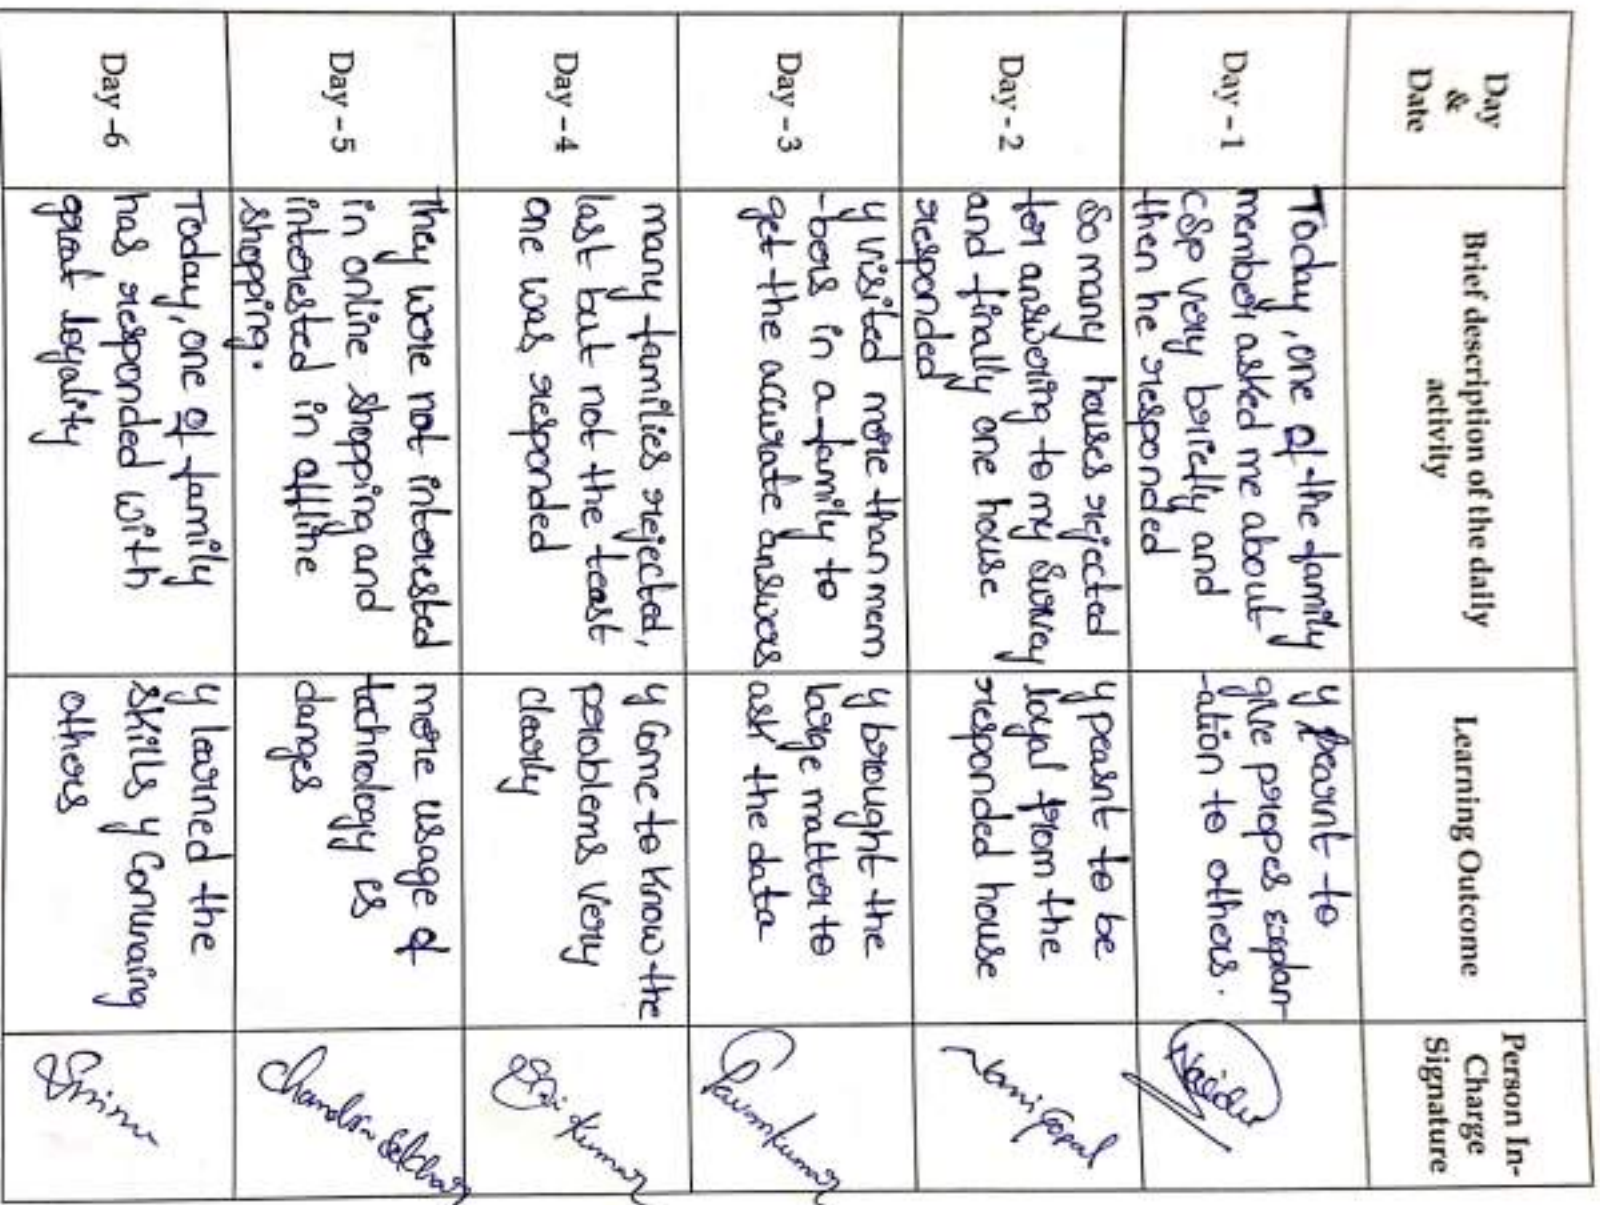 Day
&
Date
Brief description of the daily
activity
Learning Outcome
Person In-
Charge
Signature
Day - 1
Today, one of the family
member asked me about
CSP very briefly and
then he responded
y learnt to
give proper explan-
-ation to others.
Naidu
Day - 2
So many houses rejected
for answering to my survey
and finally one house
responded
y learnt to be
loyal from the
responded house
Vani Gopal
Day - 3
y visited more than mem
-bers in a family to
get the accurate answers
y brought the
large matter to
ask the data
Pavan kumar
Day - 4
many families rejected,
last but not the least
one was responded
y come to know the
problems very
clearly
Sai kumar
Day - 5
They were not interested
in online shopping and
interested in offline
shopping.
more usage of
technology is
danger
Chandra Sekhar
Day - 6
Today, one of family
has responded with
great loyality
y learned the
skills y
others
Srinu